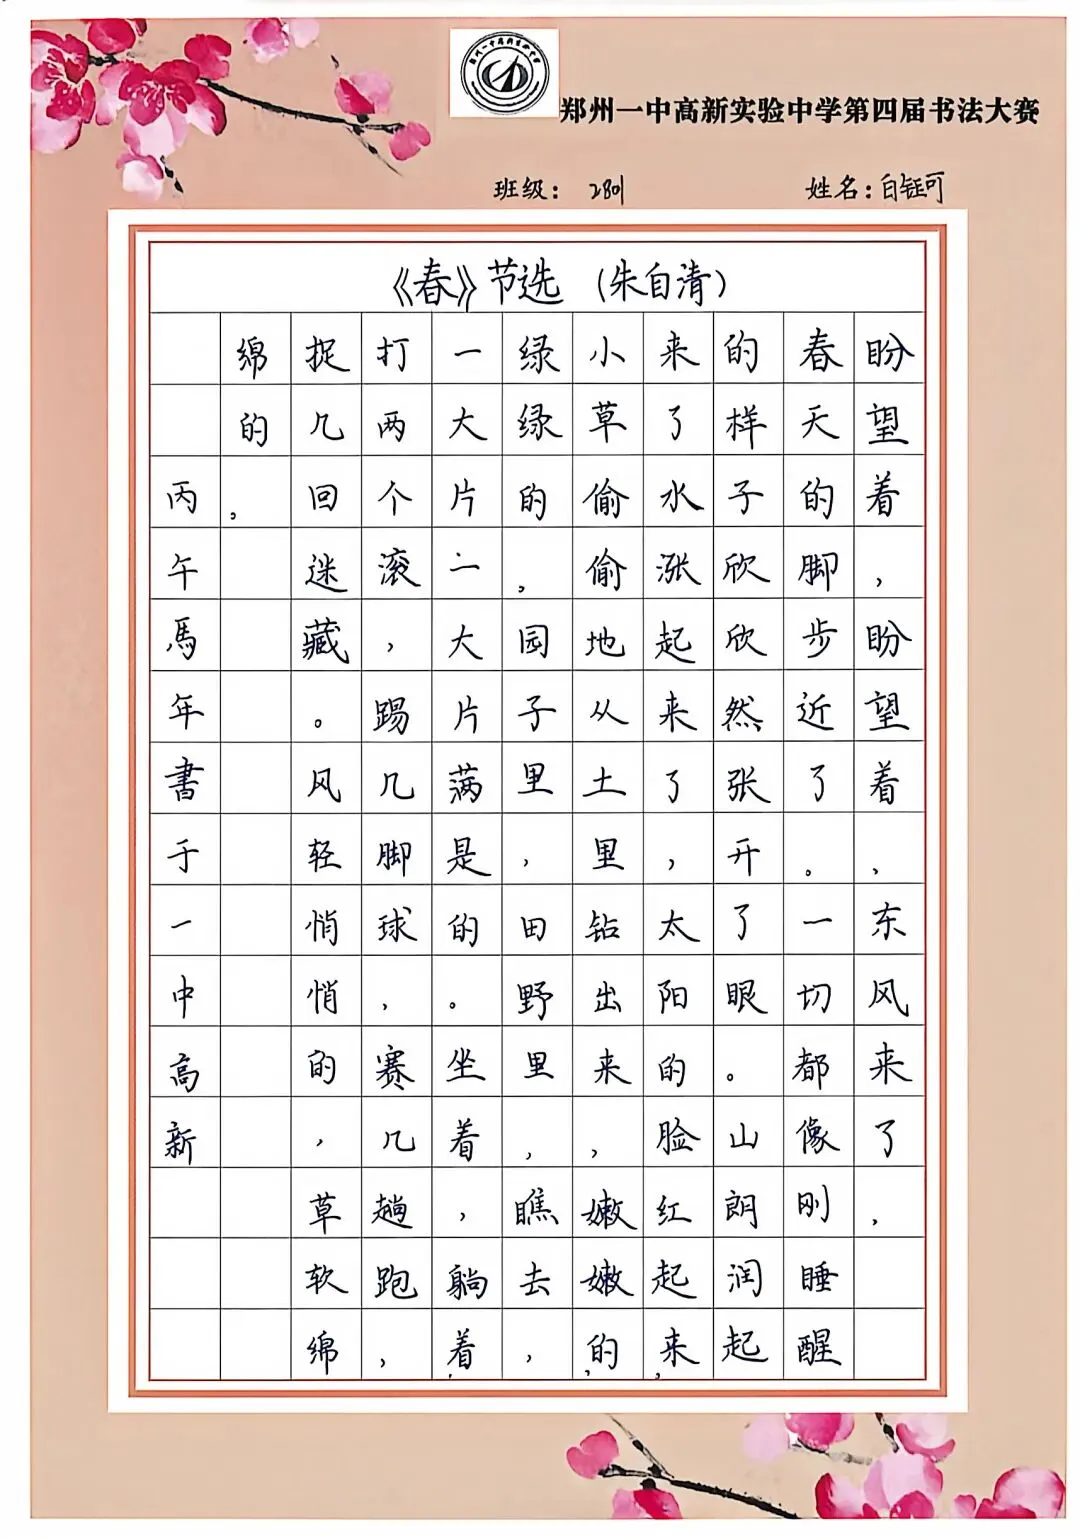 郑州一中高新实验中学第四届书法大赛
班级：2801 姓名：白钰可
《春》节选（朱自清）
盼望着，盼望着，东风来了，
春天的脚步近了。一切都像刚睡醒
的样子欣欣然张开了眼。山朗润起
来了水涨起来了，太阳的脸红起来，
小草偷偷地从土里钻出来，嫩嫩的，
绿绿的。园子里，田野里，瞧去，
一大片二大片满是的。坐着，躺着，
打两个滚，踢几脚球，赛几趟跑，
捉几回迷藏。风轻悄悄的，草软绵
绵的。
丙午馬年書于一中高新